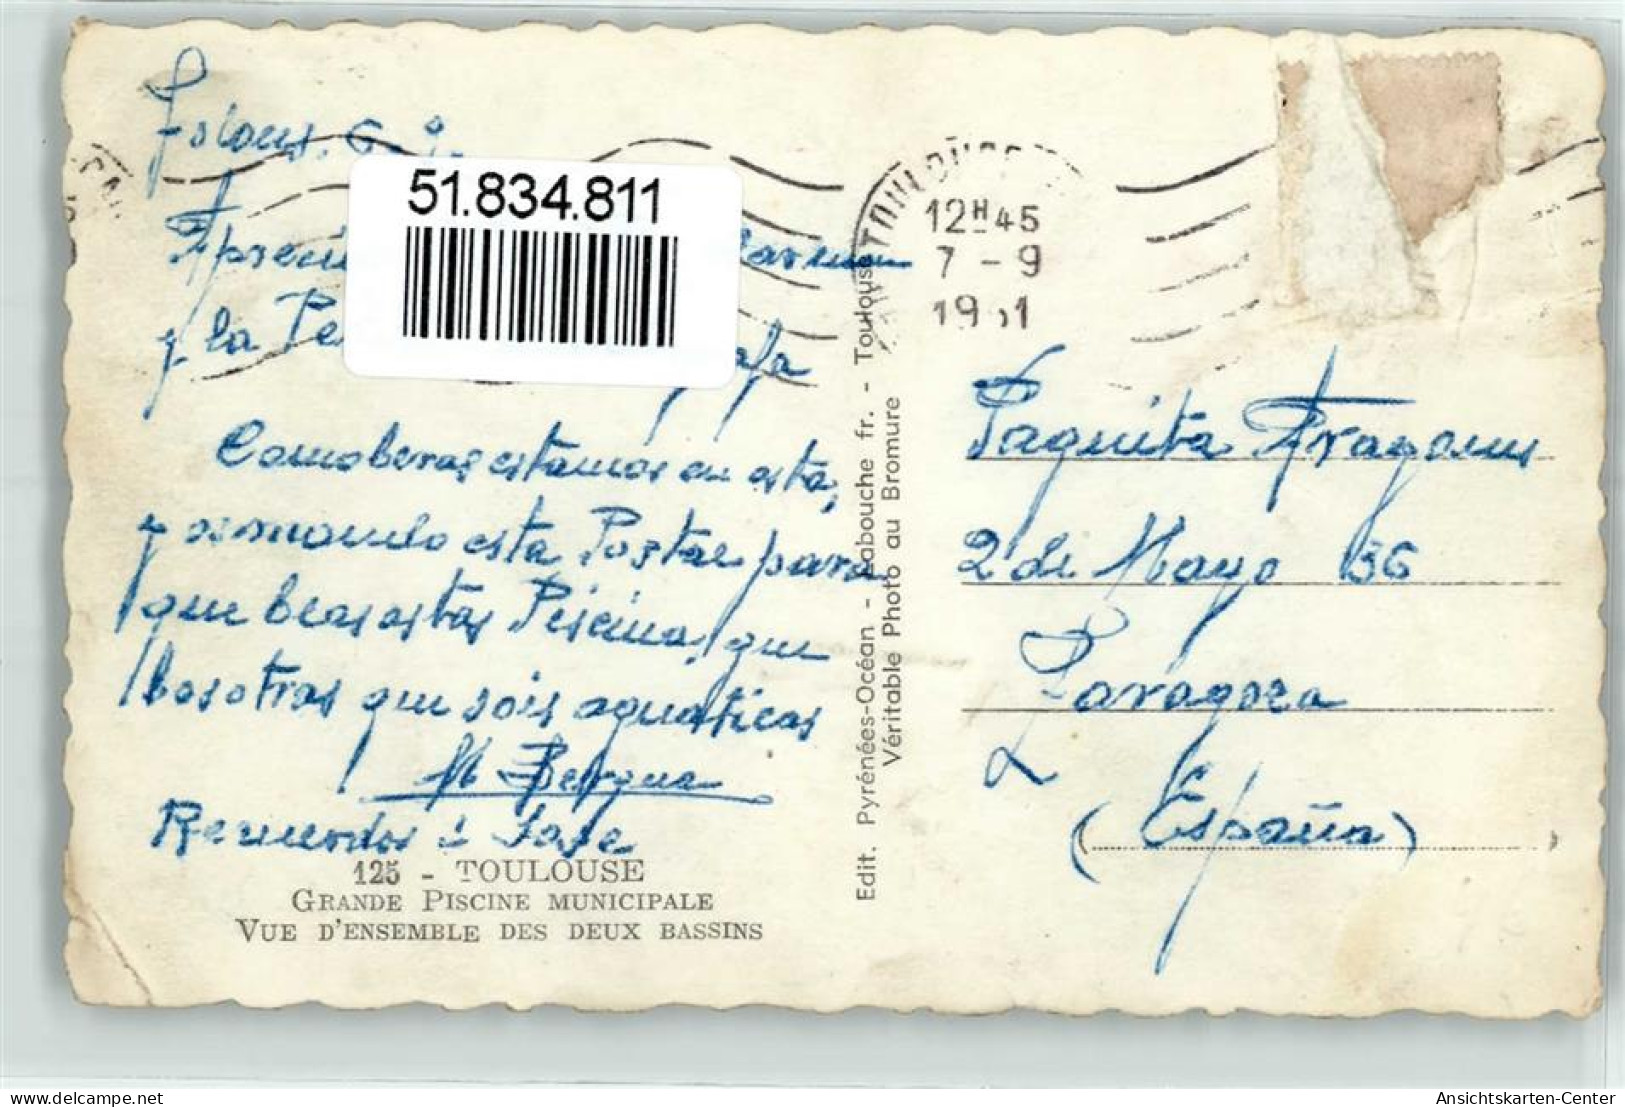 51.834.811
y la
Como beras estamos en esta,
y se mando esta Postal para
que beas estas Piscinas, que
bosotras que sois aquaticas
M Bergua
Recuerdos á Jose
125 - TOULOUSE
GRANDE PISCINE MUNICIPALE
VUE D'ENSEMBLE DES DEUX BASSINS
Edit. Pyrénées-Océan - Labouche fr. - Toulouse
Véritable Photo au Bromure
TOULOUSE
12H45
7 - 9
Paquita Aragones
2 de Mayo 36
Zaragoza
(España)
Ansichtskarten-Center
delcampe.net